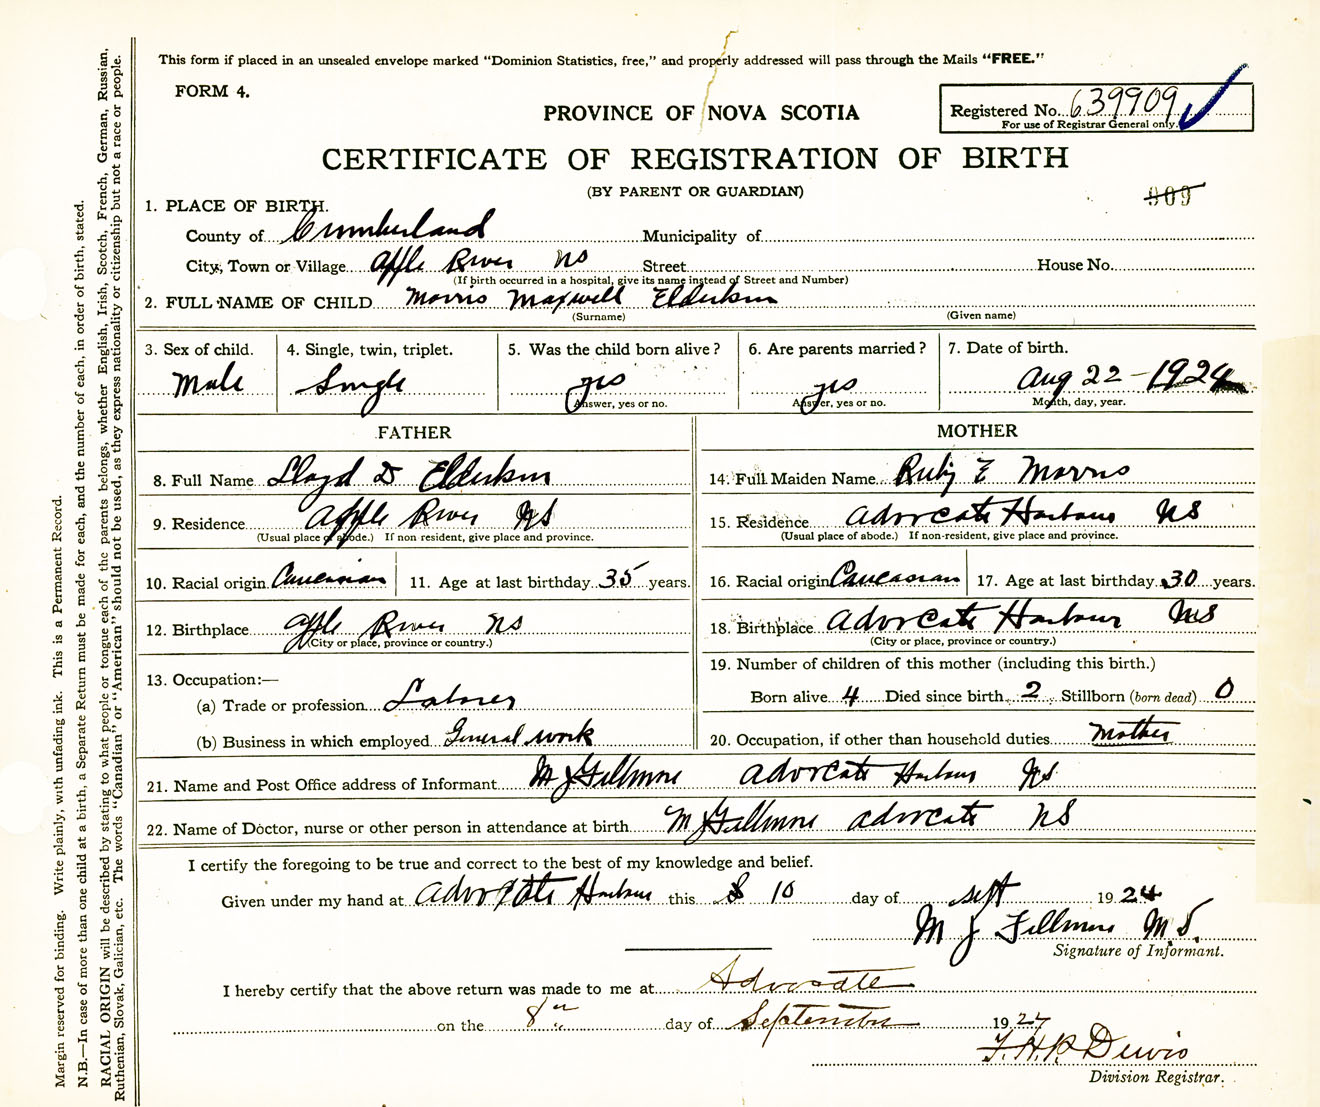 This form if placed in an unsealed envelope marked "Dominion Statistics, free," and properly addressed will pass through the Mails "FREE."
FORM 4.
PROVINCE OF NOVA SCOTIA
Registered No. 639909
For use of Registrar General only.
CERTIFICATE OF REGISTRATION OF BIRTH
(BY PARENT OR GUARDIAN)
909
1. PLACE OF BIRTH.
County of Cumberland Municipality of
City, Town or Village Apple River NS Street House No.
(If birth occurred in a hospital, give its name instead of Street and Number)
2. FULL NAME OF CHILD Morris Maxwell Elderkin
(Surname) (Given name)
3. Sex of child. 4. Single, twin, triplet. 5. Was the child born alive? 6. Are parents married? 7. Date of birth.
Male Single yes yes Aug 22 - 1924
Answer, yes or no. Answer, yes or no. Month, day, year.
FATHER MOTHER
8. Full Name Lloyd D Elderkin 14. Full Maiden Name Ruby E Morris
9. Residence Apple River NS 15. Residence Advocate Harbour NS
(Usual place of abode.) If non resident, give place and province. (Usual place of abode.) If non-resident, give place and province.
10. Racial origin Caucasian 11. Age at last birthday 35 years. 16. Racial origin Caucasian 17. Age at last birthday 30 years.
12. Birthplace Apple River NS 18. Birthplace Advocate Harbour NS
(City or place, province or country.) (City or place, province or country.)
13. Occupation:— 19. Number of children of this mother (including this birth.)
(a) Trade or profession Laborer Born alive 4 Died since birth 2 Stillborn (born dead) 0
(b) Business in which employed General work 20. Occupation, if other than household duties Mother
21. Name and Post Office address of Informant M J Fillmore Advocate Harbour NS
22. Name of Doctor, nurse or other person in attendance at birth M J Fillmore Advocate NS
I certify the foregoing to be true and correct to the best of my knowledge and belief.
Given under my hand at Advocate Harbour this 10 day of Sept 1924
M J Fillmore M.D.
Signature of Informant.
I hereby certify that the above return was made to me at Advocate
on the 8th day of September 1927
F. H. P. Dewis
Division Registrar.
Margin reserved for binding. Write plainly, with unfading ink. This is a Permanent Record.
N.B.—In case of more than one child at a birth, a Separate Return must be made for each, and the number of each, in order of birth, stated.
RACIAL ORIGIN will be described by stating to what people or tongue each of the parents belongs, whether English, Irish, Scotch, French, German, Russian,
Ruthenian, Slovak, Galician, etc. The words "Canadian" or "American" should not be used, as they express nationality or citizenship but not a race or people.